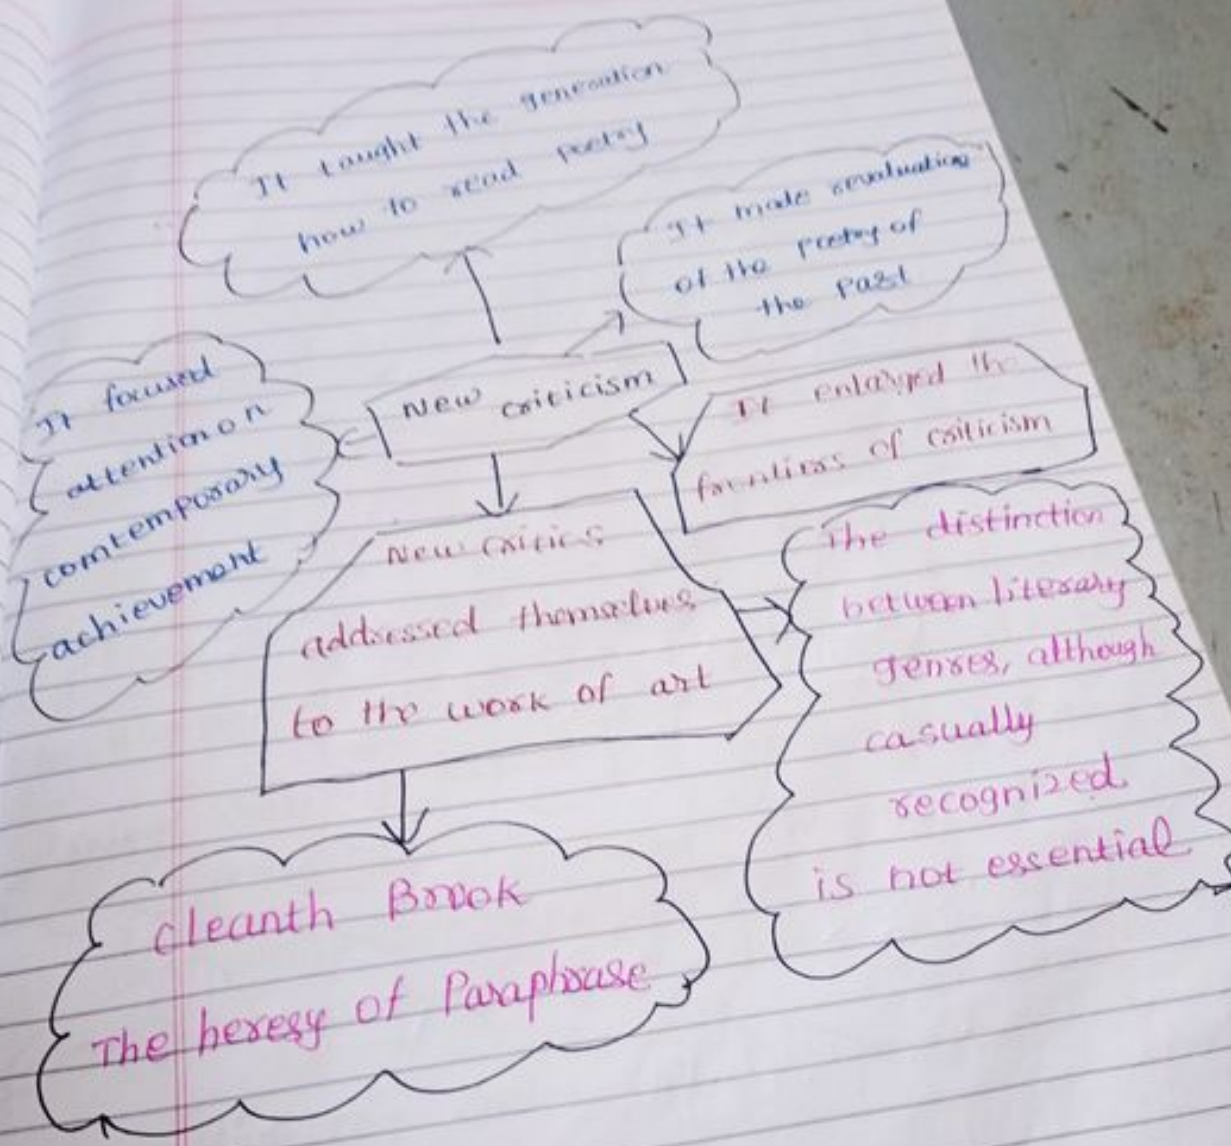 It taught the generation
how to read poetry
It made revaluation
of the poetry of
the past
It focused
attention on
contemporary
achievement
New criticism
It enlarged the
frontiers of criticism
New critics
addressed themselves
to the work of art
The distinction
between literary
genres, although
casually
recognized
is not essential
cleanth Brook
The heresy of Paraphrase